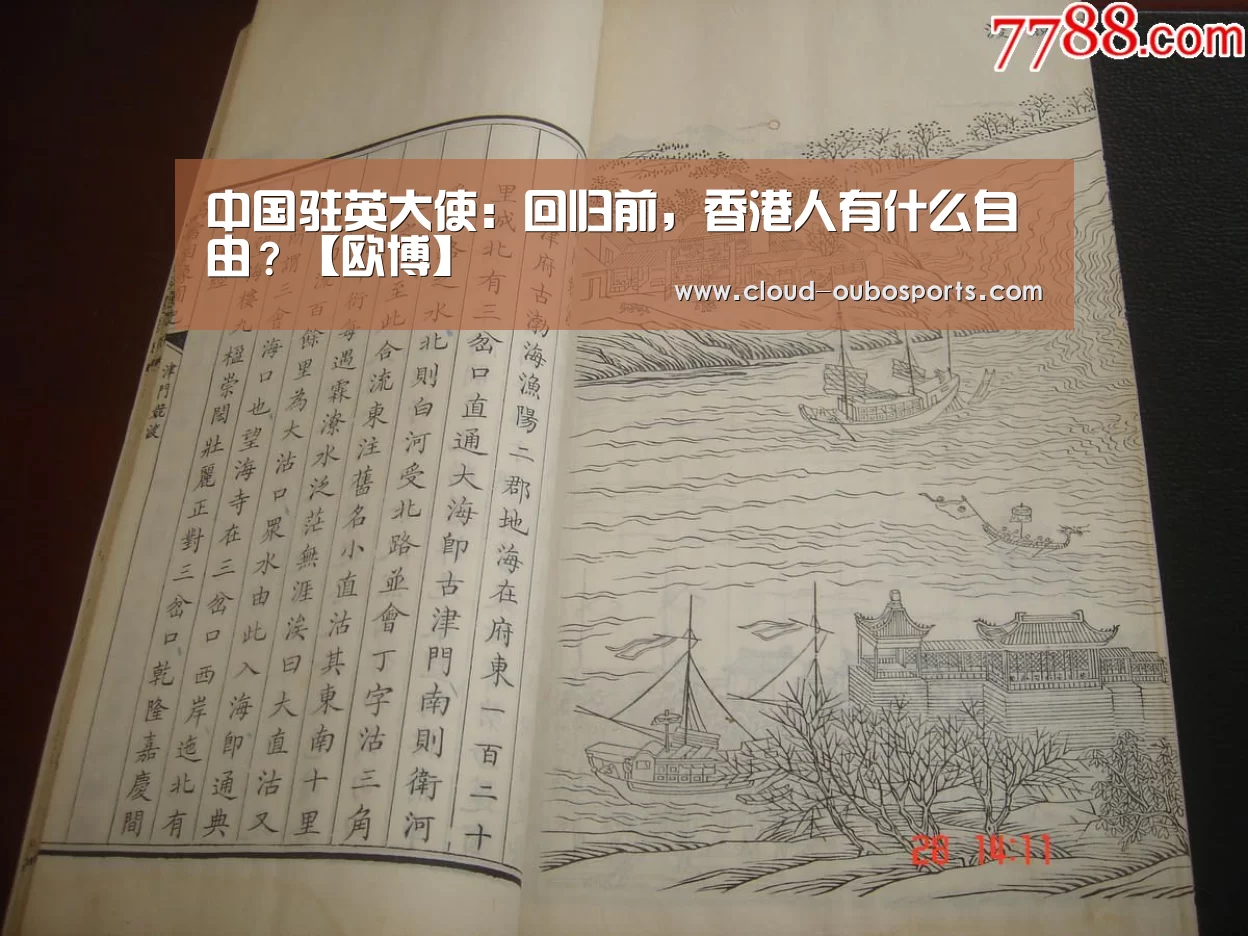 7788.com
中国驻英大使：回归前，香港人有什么自
由？【欧博】
www.cloud-oubosports.com
津府古渤海漁陽二郡地海在府東一百二十
甲戌北有三岔口直通大海即古津門南則衛河
之水北則白河受北路並會丁字沽三角
至此合流東注舊名小直沽其東南十里
每遇霖潦水泛茫無涯涘曰大直沽又
百餘里為大沽口眾水由此入海即通典
謂三會海口也望海寺在三岔口西岸迤北有
樓九楹崇閎壯麗正對三岔口乾隆嘉慶間
津門
28 14:11